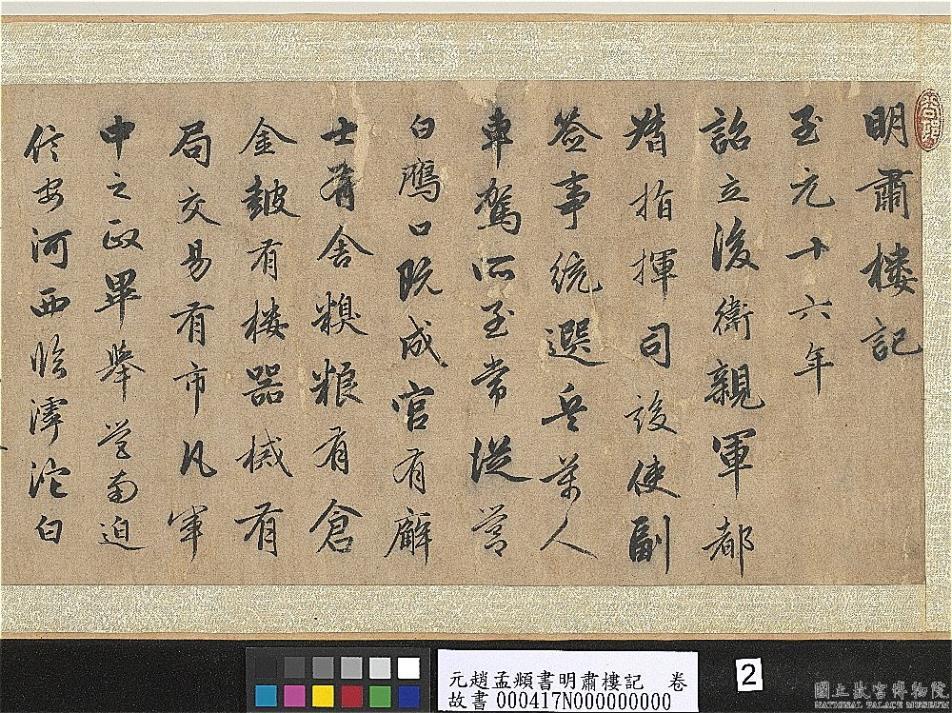 明肅樓記
至元十六年
詔立後衛親軍都
指揮司設使副
簽事統選兵萬人
車駕所至常從營
白鴈口既成官有廨
士有舍糗粮有倉
金鼓有樓器械有
局交易有市凡軍
中之政畢舉營南迫
信安河西臨滹沱白
元趙孟頫書明肅樓記 卷
故書 000417N000000000
2
國立故宮博物院
NATIONAL PALACE MUSEUM